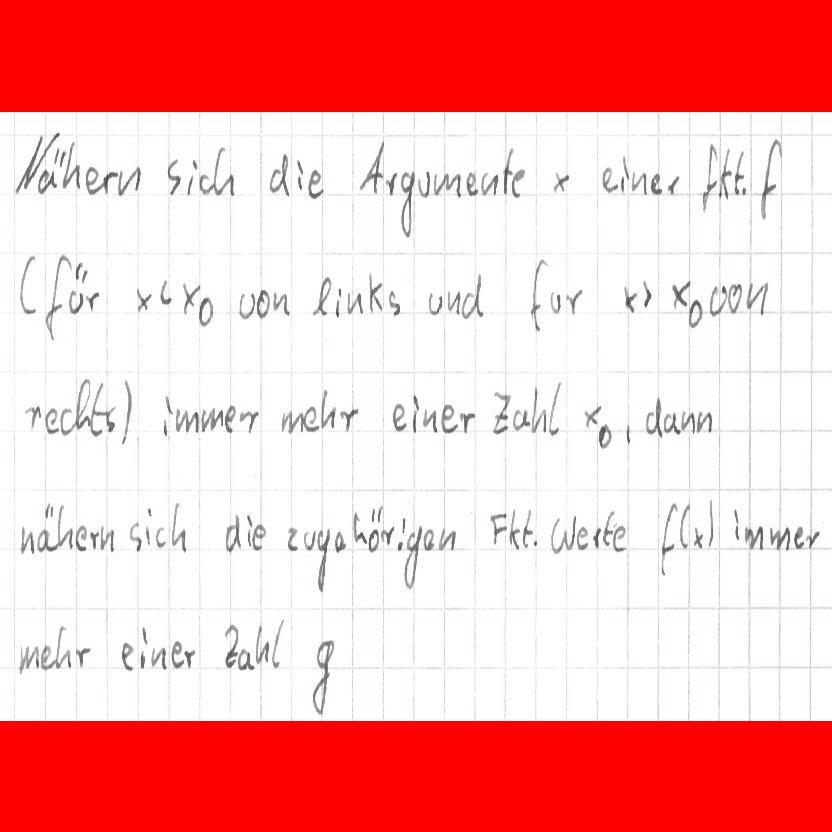 Nähern sich die Argumente x einer fkt. f
(für x<x₀ von links und fur x> x₀ von
rechts) immer mehr einer Zahl x₀, dann
nähern sich die zugehörigen Fkt. Werte f(x) immer
mehr einer Zahl g